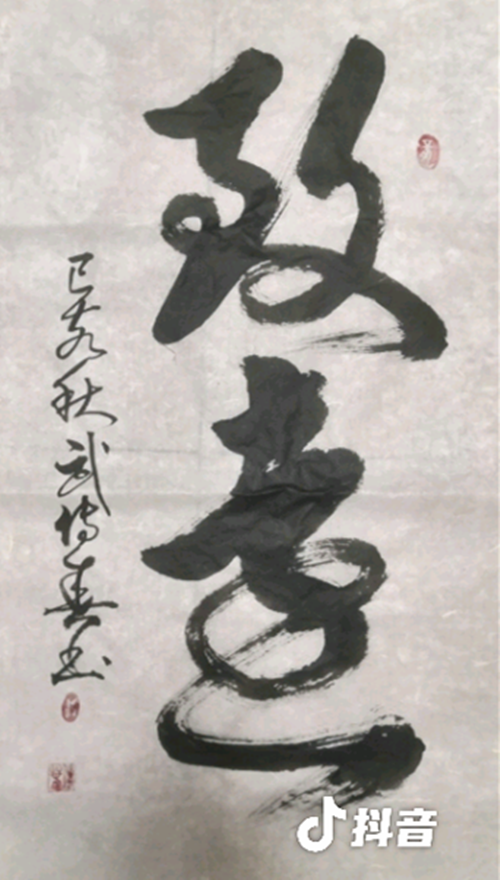 致远
己亥秋武传春书
抖音